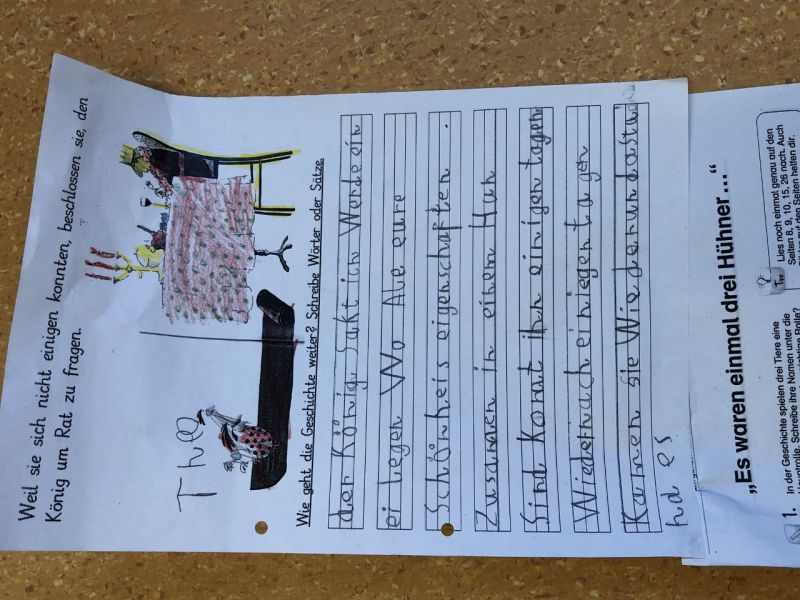 Weil sie sich nicht einigen konnten, beschlossen sie, den
König um Rat zu fragen.
Theo
Wie geht die Geschichte weiter? Schreibe Wörter oder Sätze.
der König sakt ich Werde ein
ei legen Wo Ale eure
Schönheis eigenschaften.
Zusamen in einem Hun
Sind Komt ihn einigen tagen
Wieder nach einiegen tagen
Kamen sie Wieder und a
hd es
„Es waren einmal drei Hühner ..."
1. In der Geschichte spielen drei Tiere eine
Hauptrolle. Schreibe ihre Namen unter die
Lies noch einmal genau auf den
Seiten 8, 9, 10, 15, 26 nach. Auch
auf den Seiten helfen dir.
Tipp